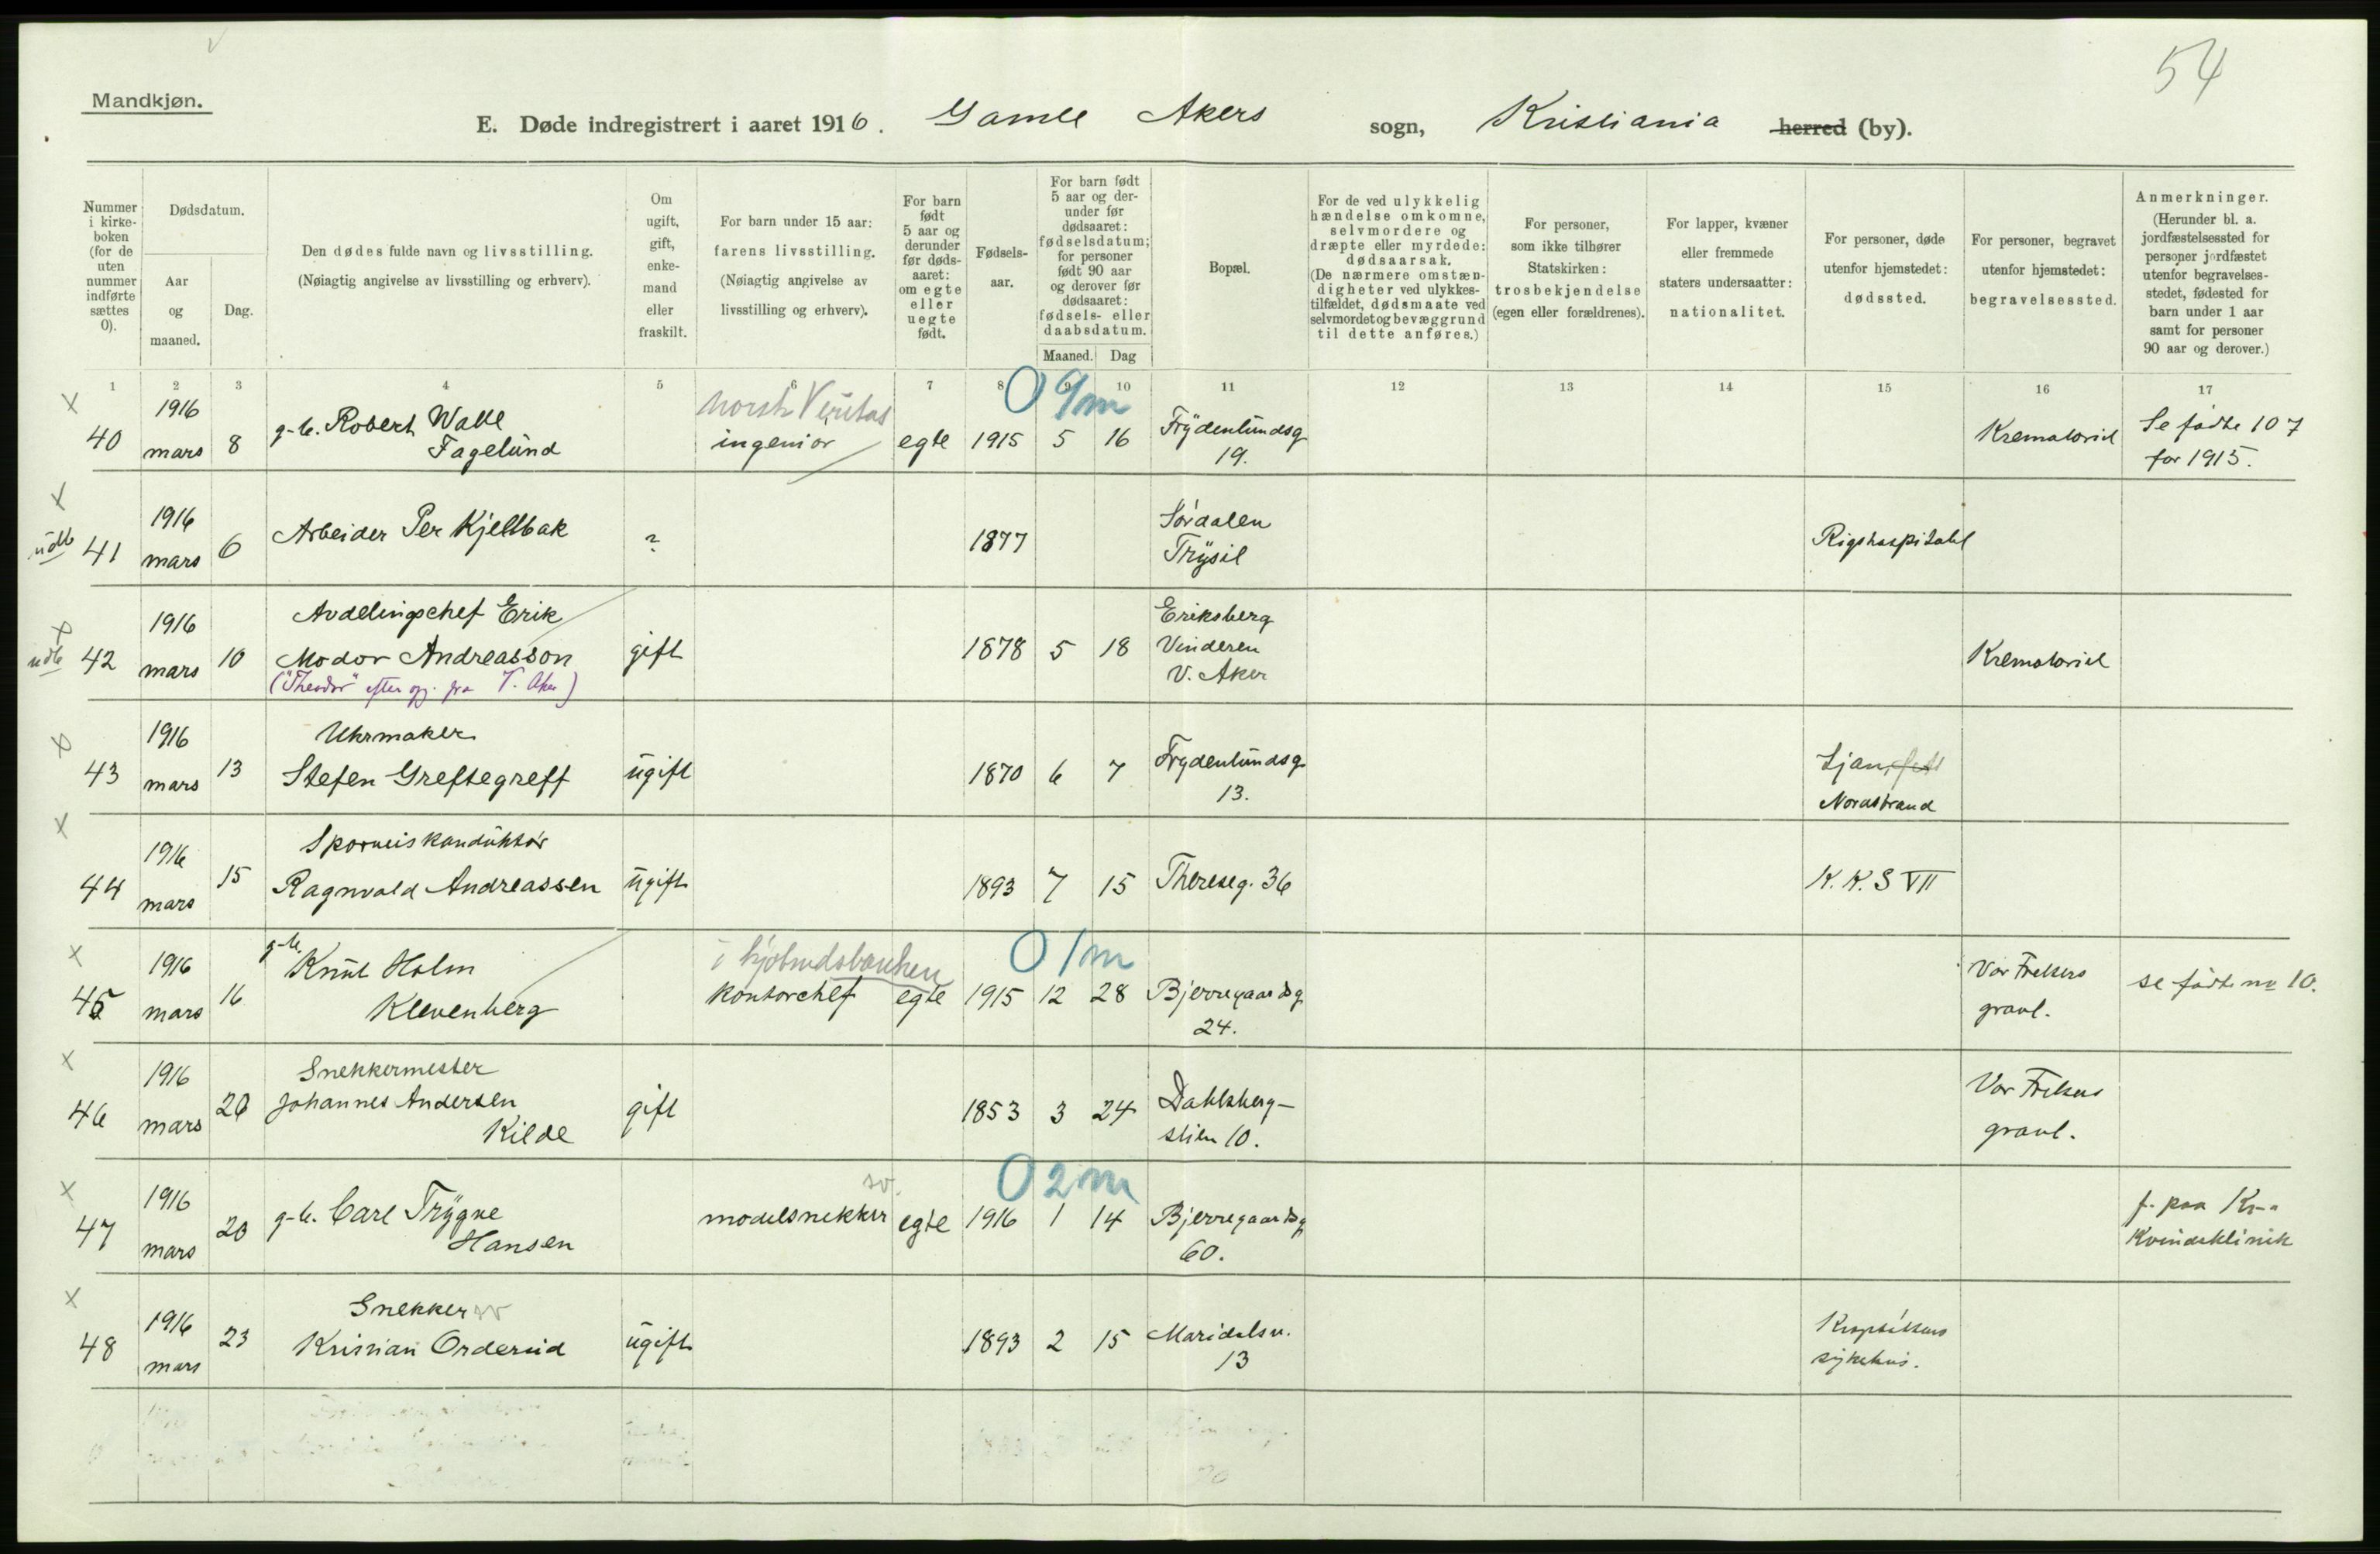 54
Mandkjøn.
E. Døde indregistrert i aaret 1916. Gamle Akers sogn, Kristiania herred (by).
Nummer i kirke-boken (for de uten nummer indførte sættes 0).
Dødsdatum.
Aar og maaned.
Dag.
Den dødes fulde navn og livsstilling.
(Nøiagtig angivelse av livsstilling og erhverv).
Om ugift, gift, enke-mand eller fraskilt.
For barn under 15 aar: farens livsstilling.
(Nøiagtig angivelse av livsstilling og erhverv).
For barn født 5 aar og derunder før døds-aaret: om egte eller uegte født.
Fødsels-aar.
For barn født 5 aar og der-under før dødsaaret: fødselsdatum; for personer født 90 aar og derover før dødsaaret: fødsels- eller daabsdatum.
Maaned. Dag
Bopæl.
For de ved ulykkelig hændelse omkomne, selvmordere og dræpte eller myrdede: dødsaarsak. (De nærmere omstæn-digheter ved ulykkes-tilfældet, dødsmaate ved selvmordet og bevæggrund til dette anføres.)
For personer, som ikke tilhører Statskirken: trosbekjendelse (egen eller forældrenes).
For lapper, kvæner eller fremmede staters undersaatter: nationalitet.
For personer, døde utenfor hjemstedet: dødssted.
For personer, begravet utenfor hjemstedet: begravelsessted.
Anmerkninger.
(Herunder bl. a. jordfæstelsessted for personer jordfæstet utenfor begravelses-stedet, fødested for barn under 1 aar samt for personer 90 aar og derover.)
1 2 3 4 5 6 7 8 9 10 11 12 13 14 15 16 17
x 40 1916 mars 8 g-b. Robert Walle Fagelund norsk Veritas ingeniør egte 1915 5 16 0 9/m Frydenlundsg 19. Krematoriet Se fødte 107 for 1915.
x udb 41 1916 mars 6 Arbeider Per Kjellbak ? 1877 Sørdalen Trysil Rigshospitalet
x udb 42 1916 mars 10 Avdelingschef Erik Modor Andreasson ("Theodor" efter opg. fra V. Aker) gift 1878 5 18 Eriksberg Vinderen V. Aker Krematoriet
x 43 1916 mars 13 Uhrmaker Stefen Greftegreff ugift 1870 6 7 Frydenlundsg 13. Ljan, Nordstrand
x 44 1916 mars 15 Sporveiskonduktør Ragnvald Andreassen ugift 1893 7 15 Thereseg. 36 K. K. S VII
x 45 1916 mars 16 g-b. Knut Holm Klevenberg i kjøbmdsbanken kontorchef egte 1915 12 28 0 1m Bjerregaardsg 24. Vor Frelsers gravl. se fødte no 10.
x 46 1916 mars 20 Snekkermester Johannes Andersen Kilde gift 1853 3 24 Dahlsberg-stien 10. Vor Frelsers gravl.
x 47 1916 mars 20 g-b. Carl Trygve Hansen modelsnekker sv. egte 1916 1 14 0 2m Bjerregaardsg 60. f. paa Kr-a Kvindeklinik
x 48 1916 mars 23 Snekker sv Kristian Orderud ugift 1893 2 15 Maridalsv. 13 sykehus.